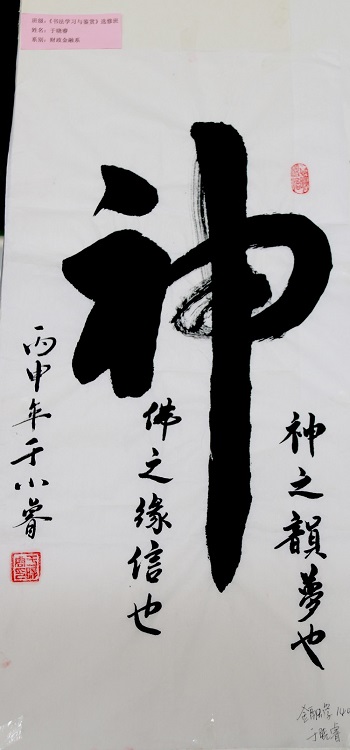 班级:《书法学习与鉴赏》选修班
姓名:于晓睿
系别:财政金融系
神
神之韻夢也
佛之缘信也
丙申年于小睿